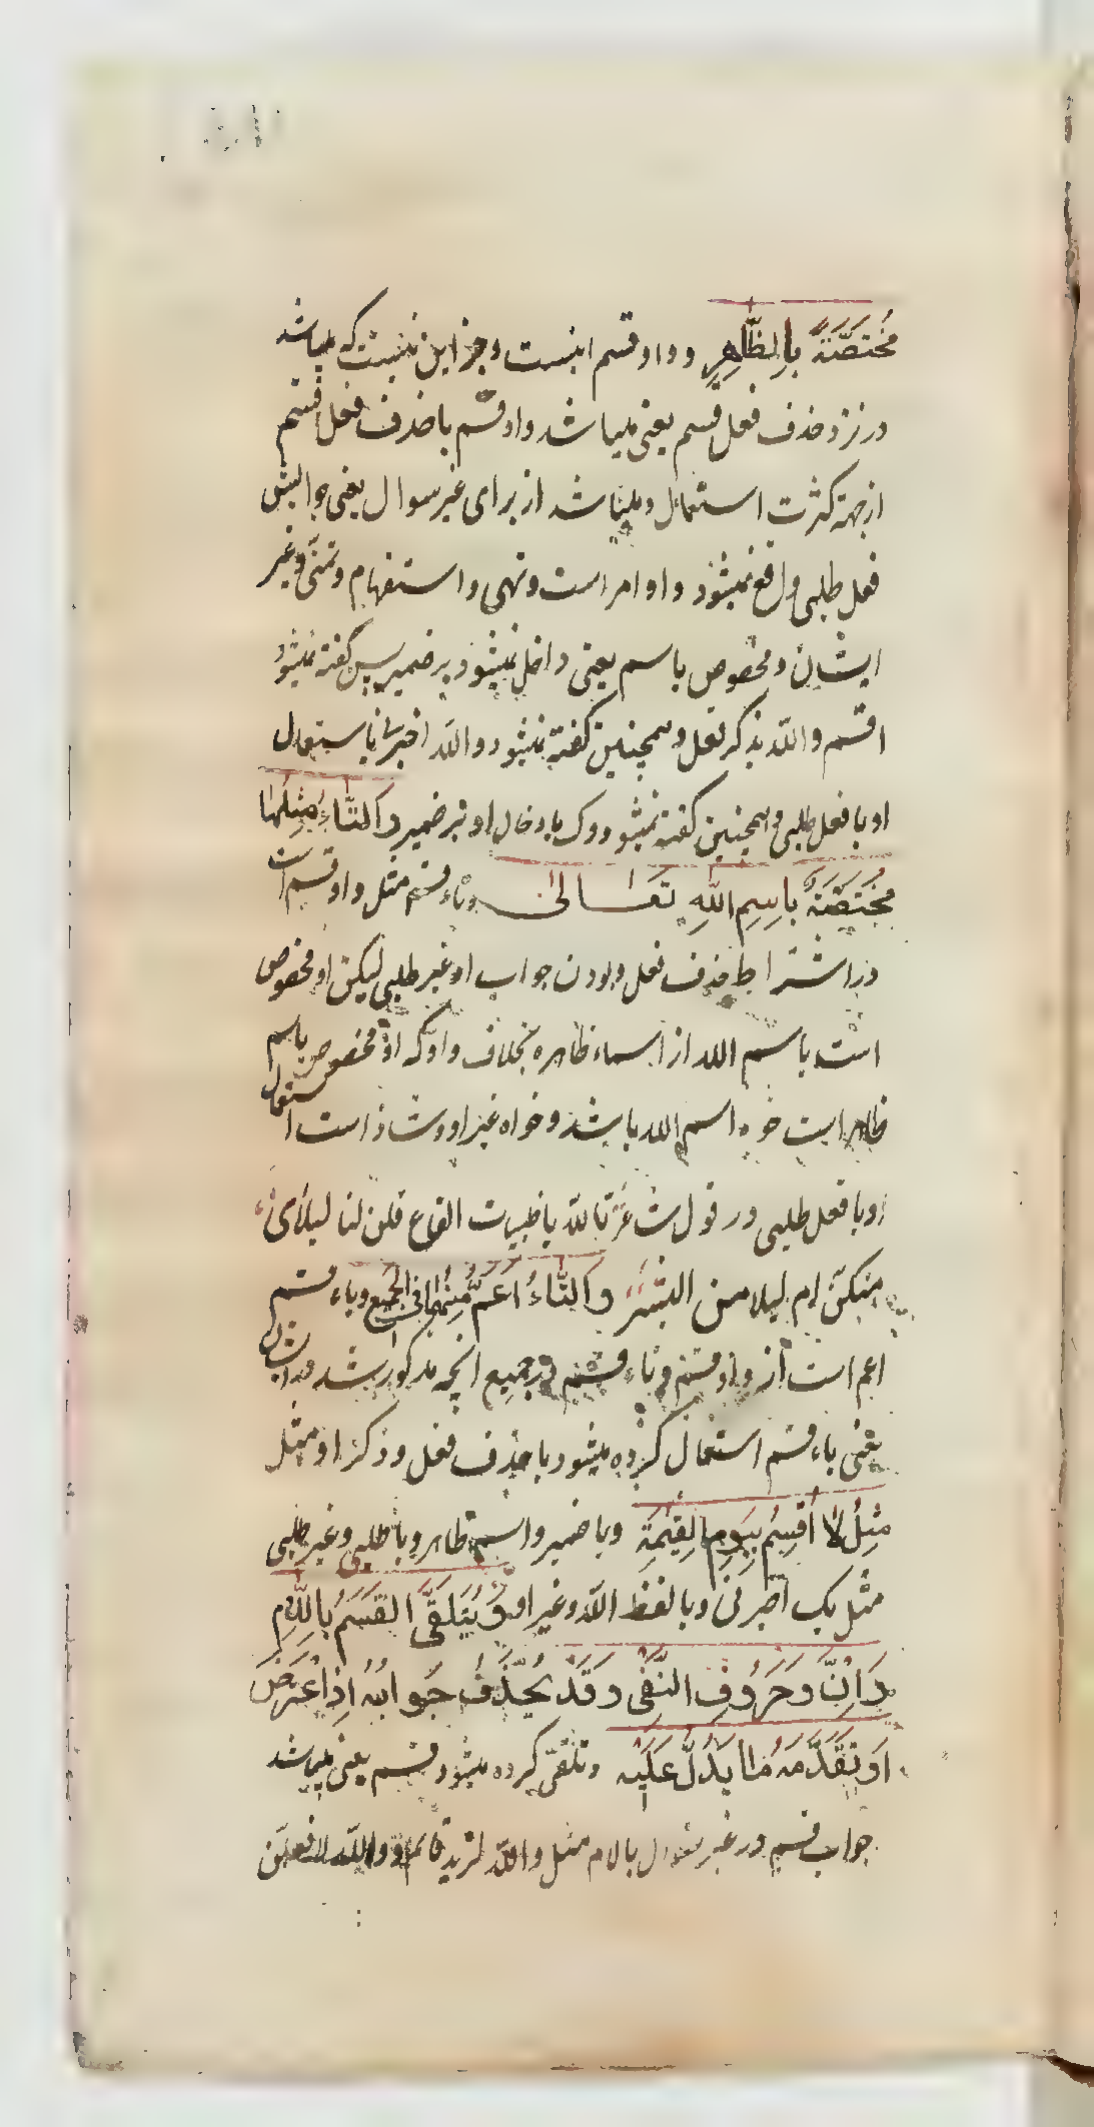 مُخْتَصَّةً بِالظَّاهِرِ و واو قسم اینست و جز این نیست که میباشد
در نزد حذف فعل قسم یعنی میباشد واو قسم با حذف فعل قسم
از جهة کثرت استعمال و میباشد از برای غیر سوال یعنی جوابش
فعل طلبی واقع نمیشود و او امر است و نهی و استفهام و تمنّی و غیر
ایشان و مخصوص باسم یعنی داخل نمیشود بر ضمیر پس گفته نمیشود
اقسم و اللّه بذکر فعل و همچنین گفته نمیشود و اللّه اخبرنی باستعمال
او با فعل طلبی و همچنین گفته نمیشود وک بادخال او بر ضمیر وَالتَّاءُ مِثْلُهَا
مُخْتَصَّةً بِاسْمِ اللّٰهِ تَعَالىٰ و تاء قسم مثل واو قسم است
در اشتراط حذف فعل و بودن جواب او غیر طلبی لیکن او مخصوص
است باسم اللد از اسماء ظاهره بخلاف واو که او مخصوص باسم
ظاهر است خوه اسم اللد باشد و خواه غیر او و شاذ است استعمال
او با فعل طلبی در قول شاعر تاللّه یا ظبیات القاع قلن لنا لیلای
منکنّ ام لیلا من البَشَرِ وَالْبَاءُ اَعَمُّ مِنْهُمَا فِی الْجَمِیعِ و باء قسم
اعم است از واو قسم و تاء قسم در جمیع انچه مذکور شد
یعنی باء قسم استعمال کرده میشود با حذف فعل و ذکر او مثل
مِثْلُ لَا أُقْسِمُ بِیَوْمِ الْقِیٰمَةِ و با ضمیر و اسم ظاهر و با طلبی و غیر طلبی
مثل بک اخبرنی و بالفظ اللّه و غیر او وَ یُتَلَقَّى الْقَسَمُ بِاللَّامِ
وَ اِنَّ وَ حَرُوفِ النَّفْیِ وَقَدْ یُحْذَفُ جَوَابُهُ اِذَا اعْتَرَضَ
اَوْ تَقَدَّمَهُ مَا یَدُلُّ عَلَیْهِ و تلقّی کرده میشود قسم یعنی میباشد
جواب قسم در غیر سوال بالام مثل و اللّه لزید قائم و و اللّه لافعلنّ